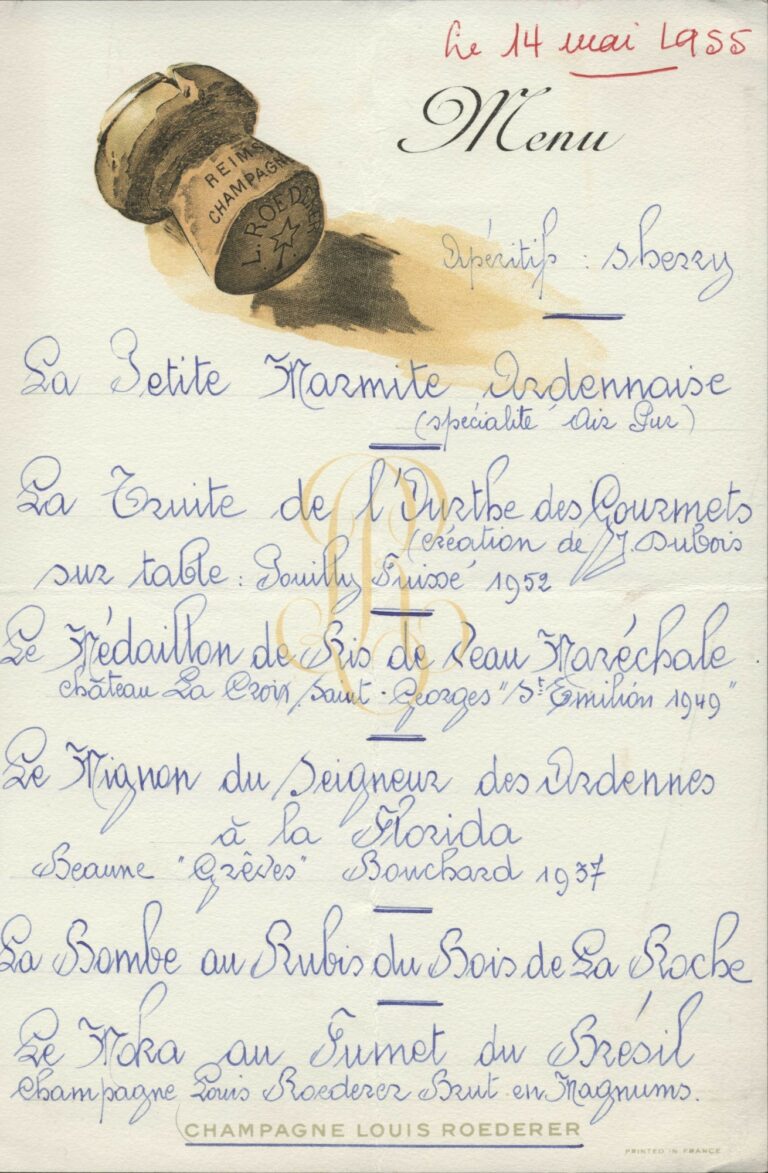 Le 14 mai 1955
Menu
REIMS
CHAMPAGNE
L. ROEDERER
Apéritif : Sherry
La Petite Marmite Ardennaise
(spécialité Air Pur)
La Truite de l'Ourthe des Gourmets
(création de J. Dubois
sur table : Pouilly Fuissé 1952
Le Médaillon de Ris de Veau Maréchale
château La Croix Saint-Georges "St Emilion 1949"
Le Mignon du Seigneur des Ardennes
à la Florida
Beaune "Grèves" Bouchard 1937
La Bombe au Rubis du Bois de La Roche
Le Moka au Fumet du Brésil
Champagne Louis Roederer Brut en Magnums.
CHAMPAGNE LOUIS ROEDERER
PRINTED IN FRANCE